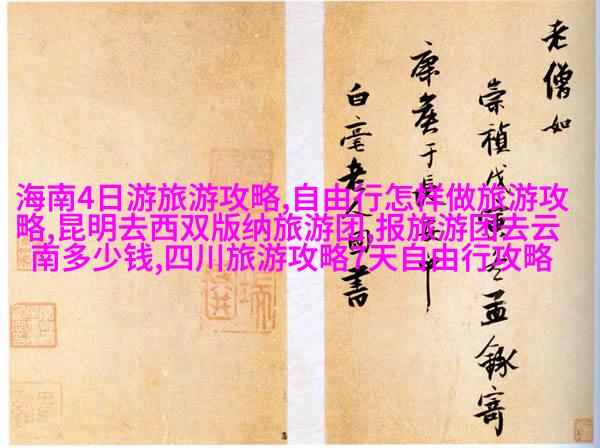 海南4日游旅游攻略,自由行怎样做旅游攻
略,昆明去西双版纳旅游团,报旅游团去云
南多少钱,四川旅游攻略7天自由行攻略
老僧如
崇禎戊寅冬孟録寄
康侯于長安中
白毫老人圓書